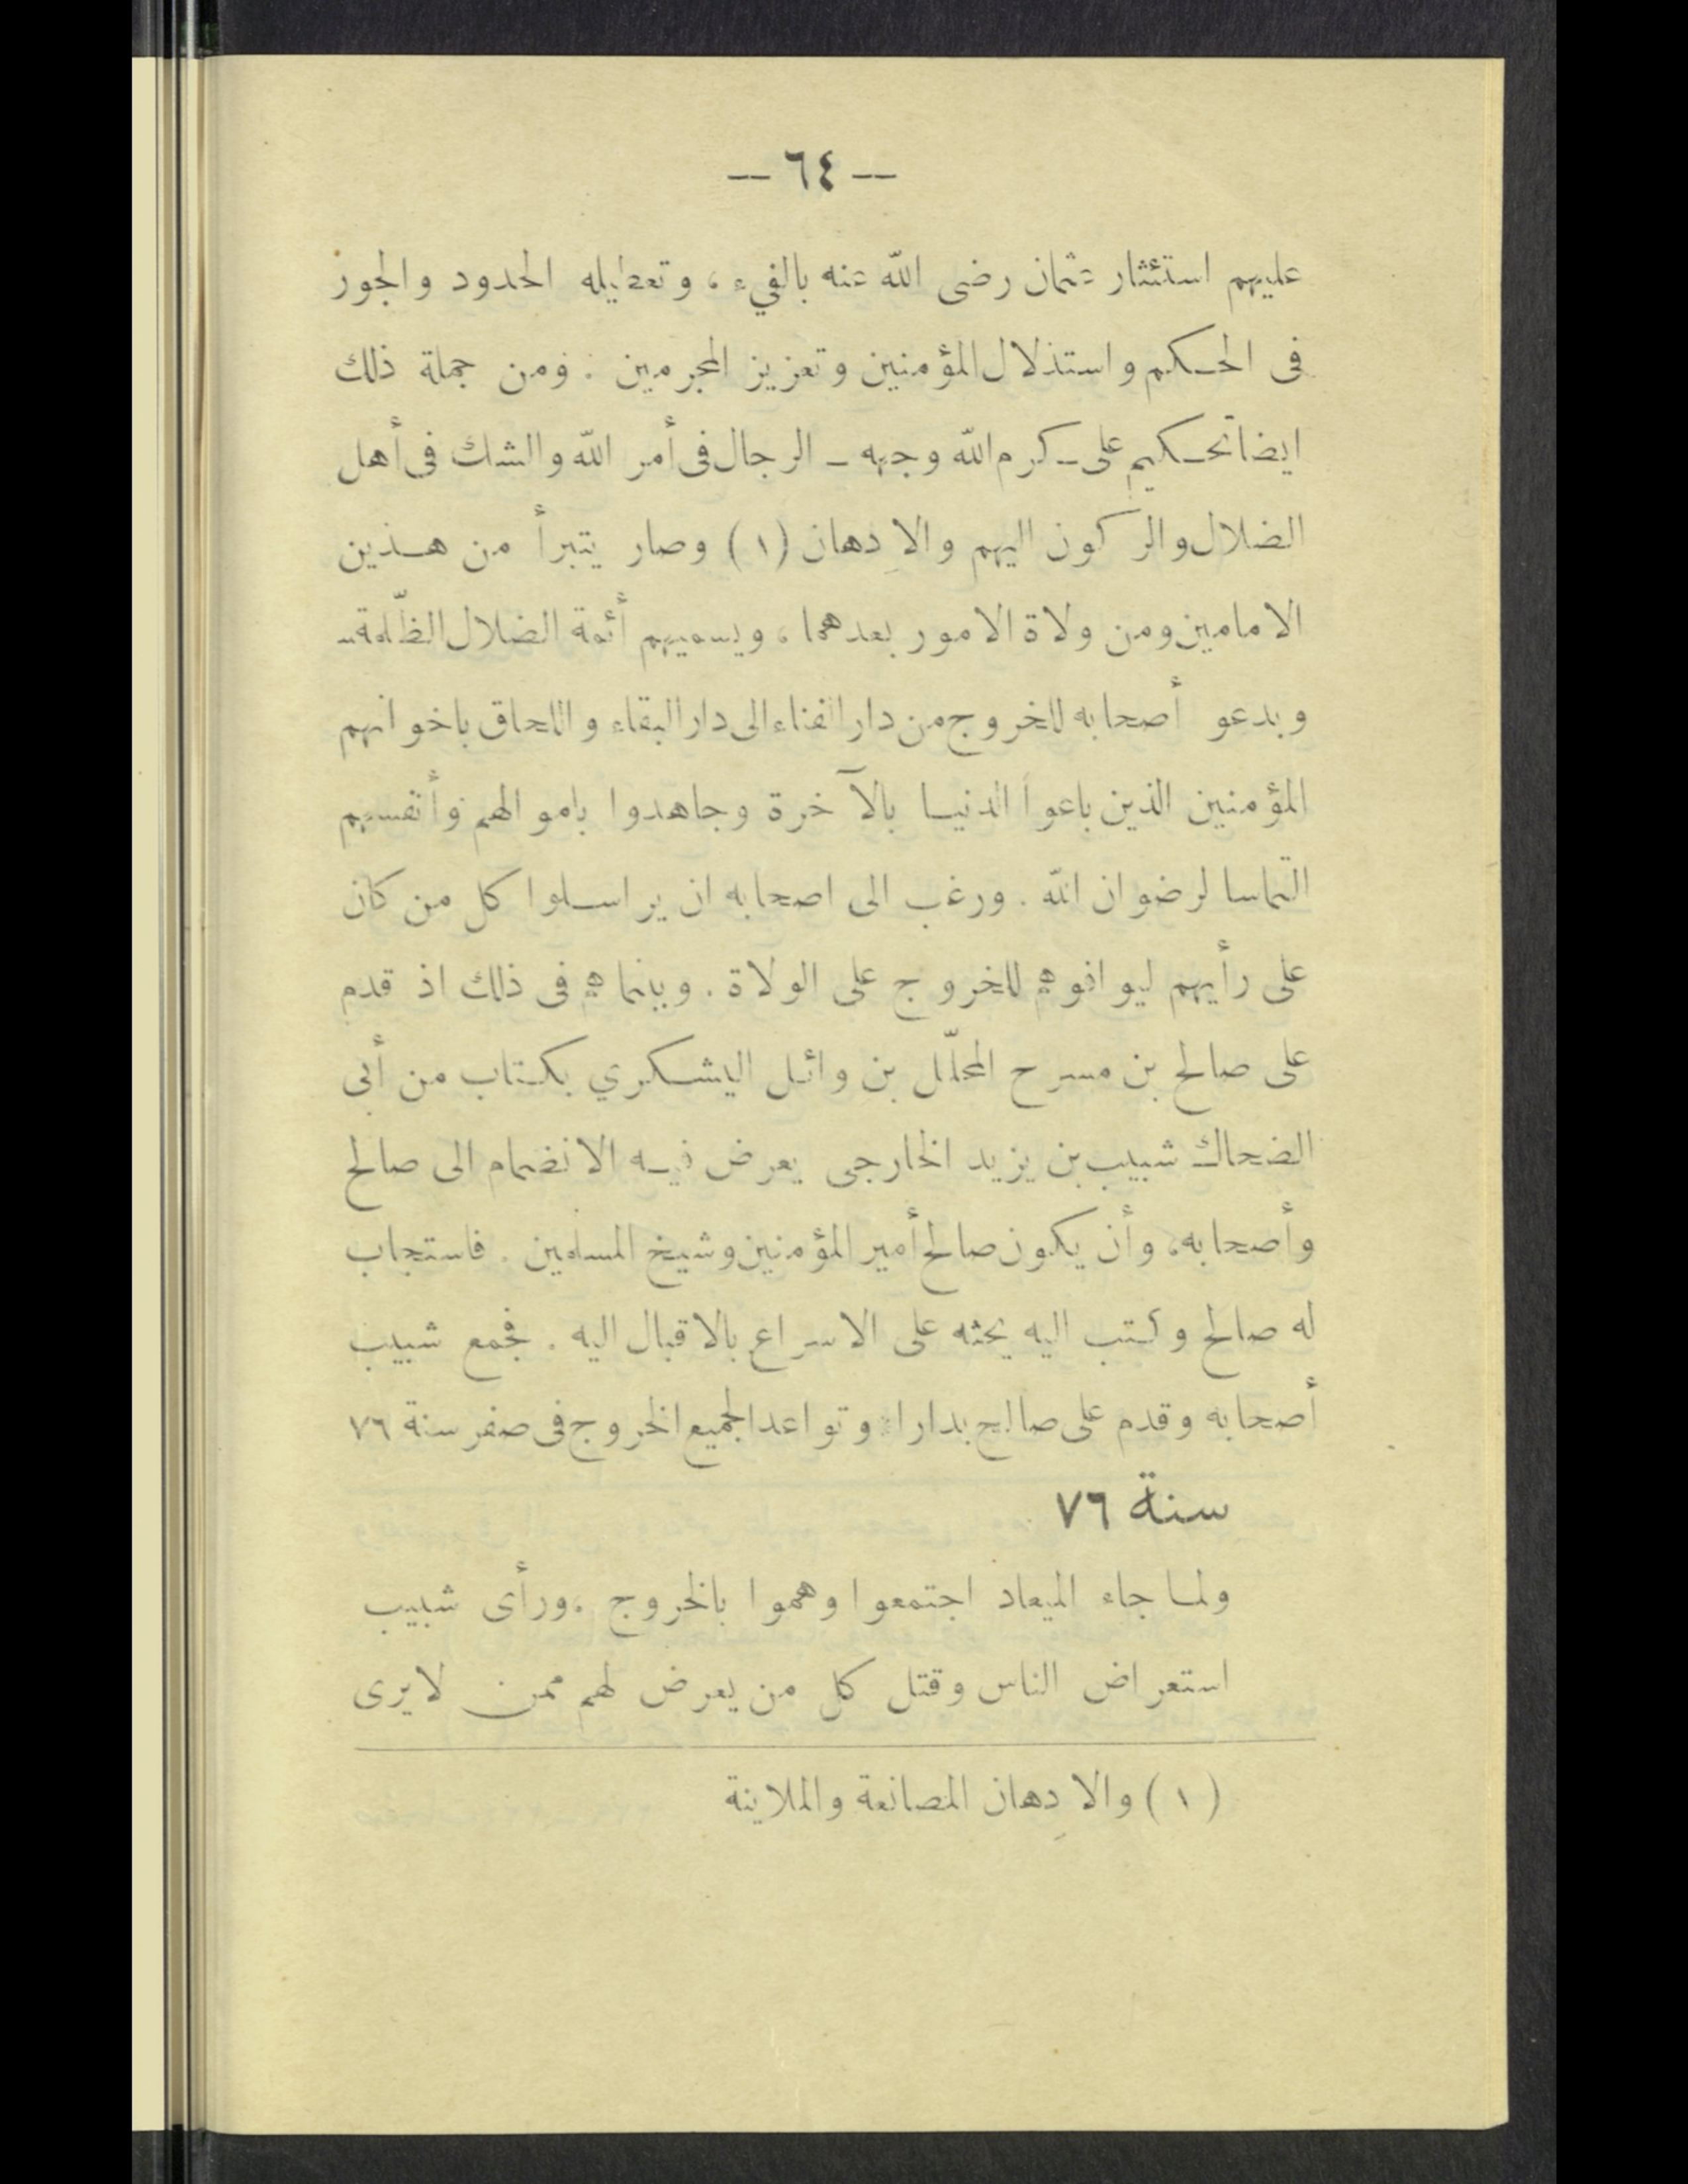 — ٦٤ —
عليهم استئثار عثمان رضى الله عنه بالفيء ، وتعطيله الحدود والجور
فى الحكم واستذلال المؤمنين وتعزيز المجرمين . ومن جملة ذلك
ايضا تحكيم على ـ كرم الله وجهه ـ الرجال فى أمر الله والشك فى أهل
الضلال والركون اليهم والاِدهان (١) وصار يتبرأ من هذين
الامامين ومن ولاة الامور بعدهما ، ويسميهم أئمة الضلال الظّلمة ـ
ويدعو أصحابه للخروج من دار الفناء الى دار البقاء واللحاق باخوانهم
المؤمنين الذين باعوا الدنيا بالآخرة وجاهدوا باموالهم وأنفسهم
التماسا لرضوان الله . ورغب الى اصحابه ان يراسلوا كل من كان
على رأيهم ليوافوهم للخروج على الولاة . وبينما هم فى ذلك اذ قدم
على صالح بن مسرح المحلّل بن وائل اليشكري بكتاب من أبى
الضحاك شبيب بن يزيد الخارجى يعرض فيه الانضمام الى صالح
وأصحابه ، وأن يكون صالح أمير المؤمنين وشيخ المسلمين . فاستجاب
له صالح وكتب اليه يحثه على الاسراع بالاقبال اليه . فجمع شبيب
أصحابه وقدم على صالح بدارا وتواعد الجميع الخروج فى صفر سنة ٧٦
سنة ٧٦
ولما جاء الميعاد اجتمعوا وهموا بالخروج ، ورأى شبيب
استعراض الناس وقتل كل من يعرض لهم ممن لا يرى
(١) والاِدهان المصانعة والملاينة